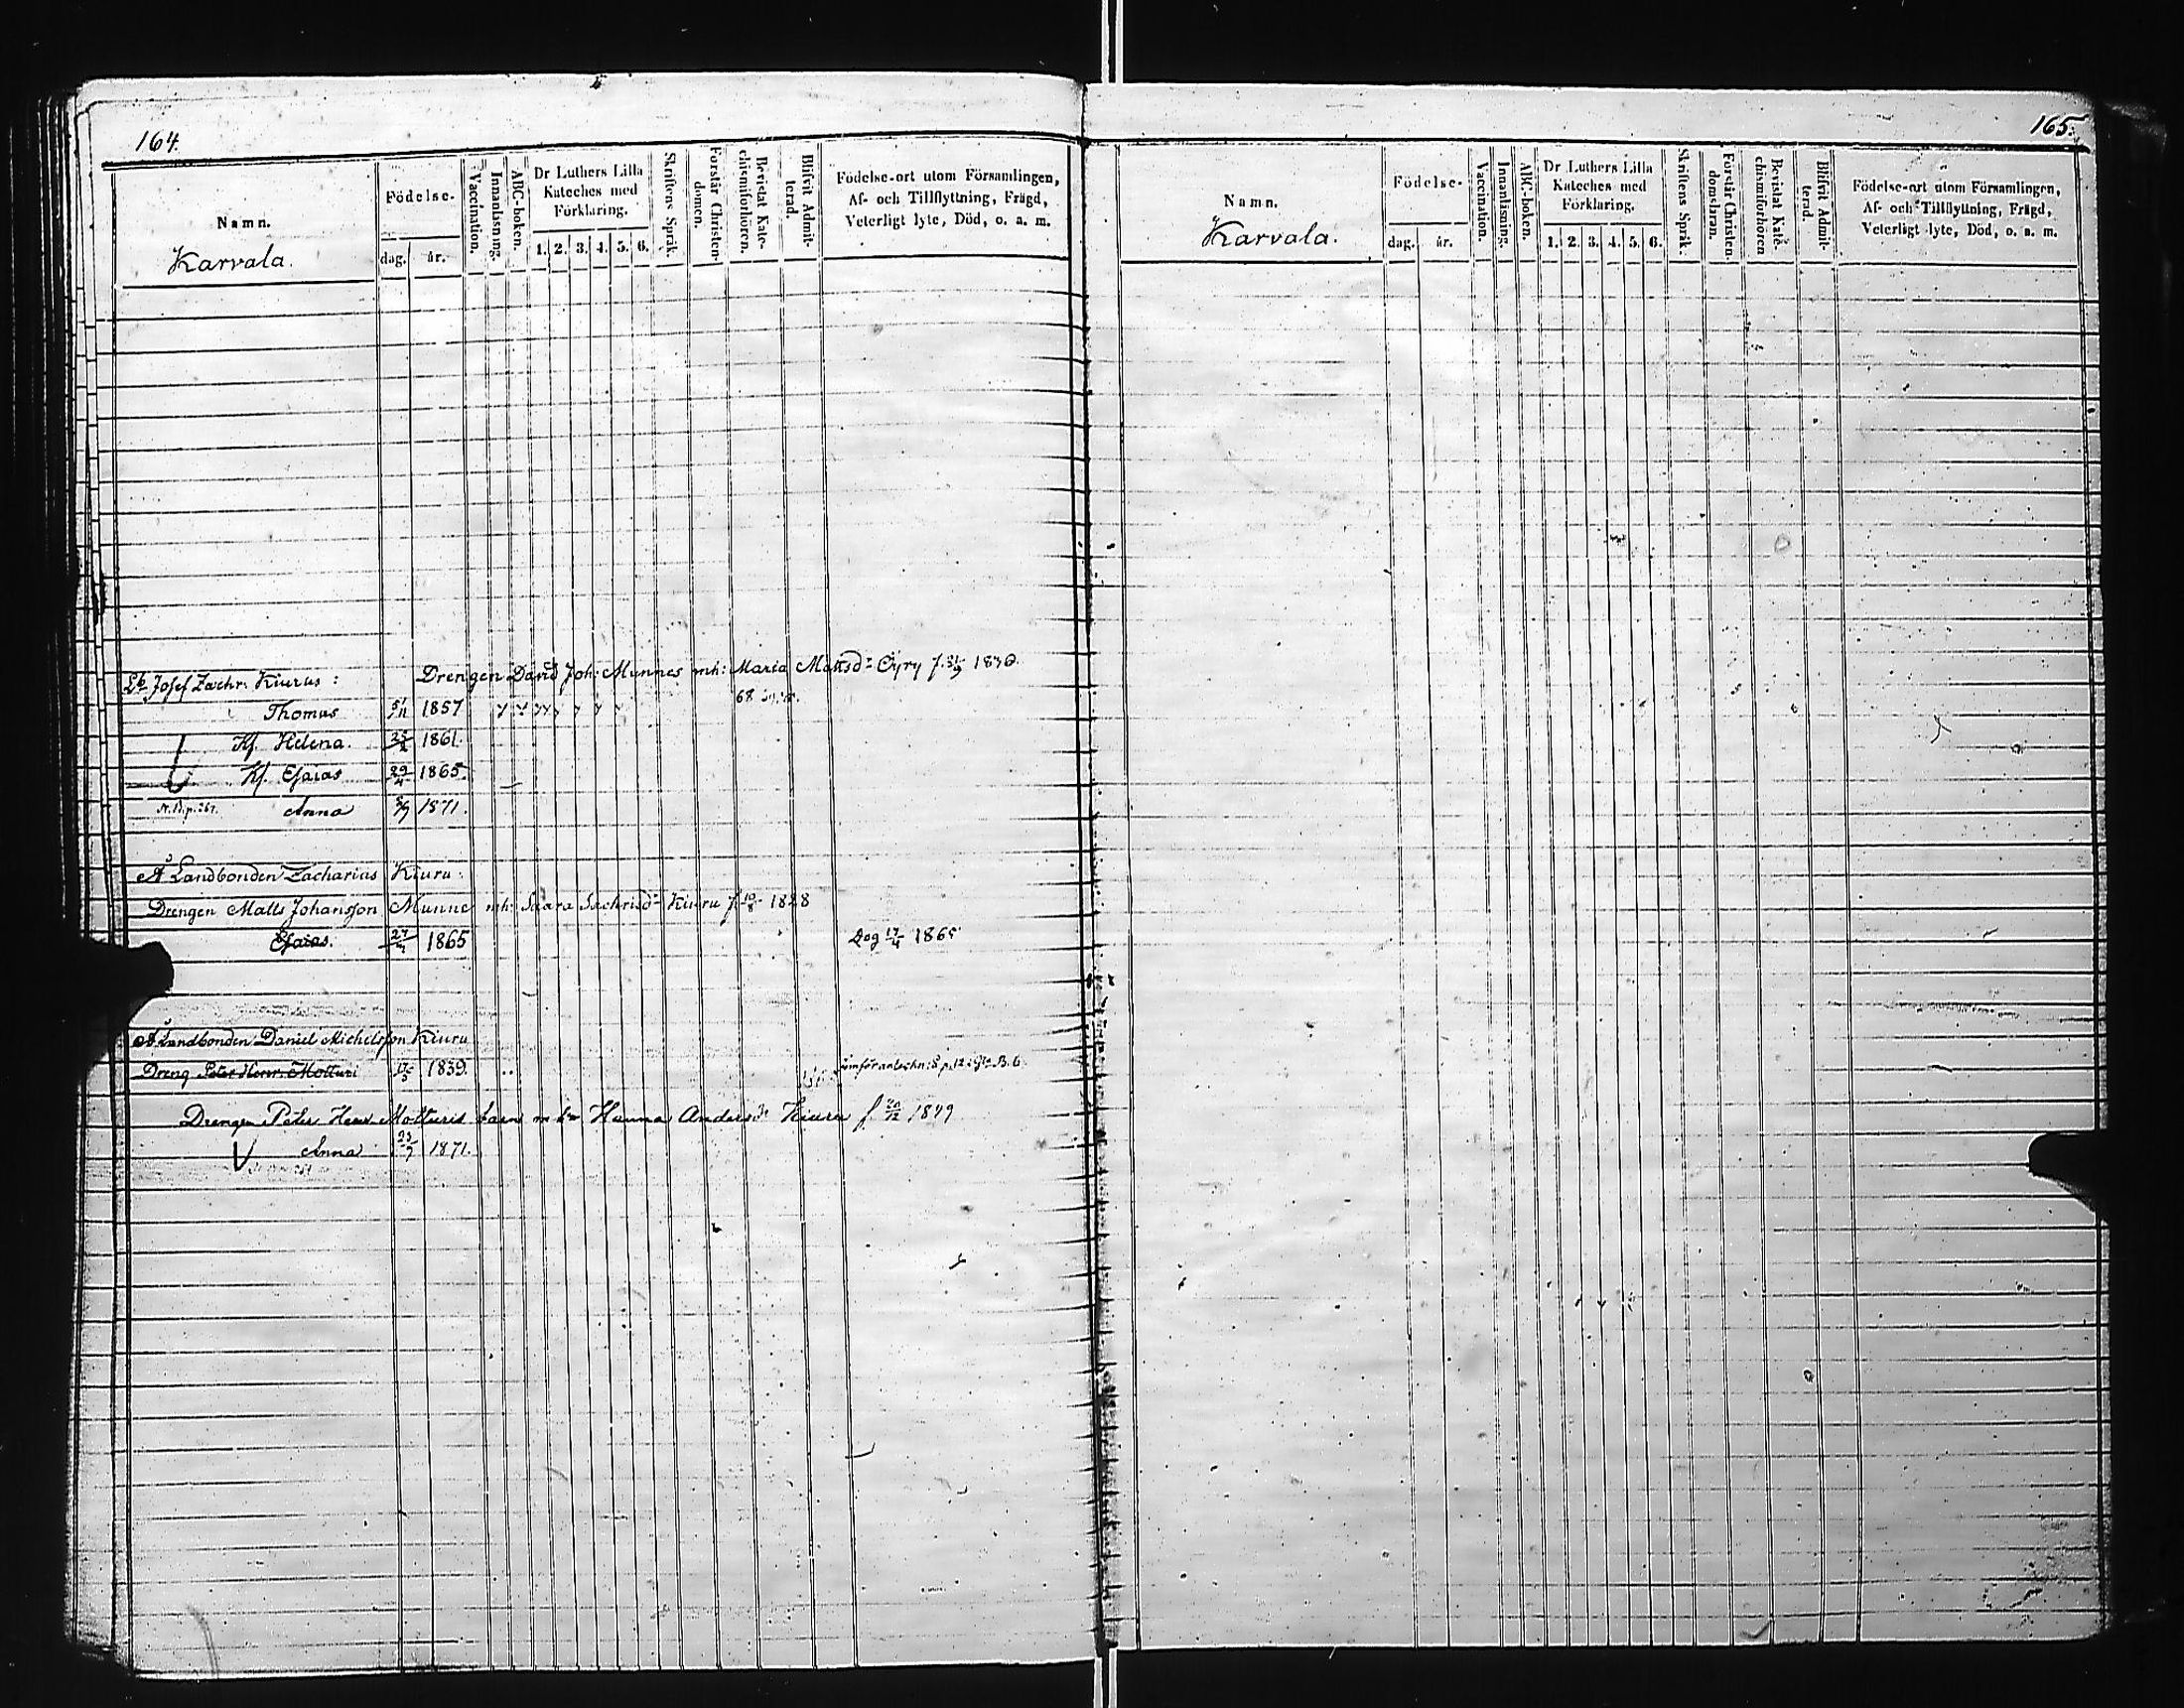 164.
Namn.
Karvala.
Födelse-
dag. år.
Vaccination.
Innanläsning.
ABC-boken.
Dr Luthers Lilla
Kateches med
Förklaring.
1. 2. 3. 4. 5. 6.
Skriftens Språk.
Förstår Christen-
domen.
Bevistat Kate-
chismiförhören.
Blifvit Admit-
terad.
Födelse-ort utom Församlingen,
Af- och Tillflyttning, Frägd,
Veterligt lyte, Död, o. a. m.
Lb. Josef Zachr. Kiurus: Drengen David Joh: Munnes mh: Maria Mattsdr Öyry f. 1830.
68
Thomas 5/11 1857
Kf. Helena. 1861.
Kf. Esaias 29/4 1865.
N.B. p. 267. Anna 1871.
Å Landbonden Zacharias Kiuru:
Drengen Matts Johansson Munne mh: Saara Sachrisdr Kiuru f. 10/8 1828
Esaias. 1865 Dog 17/4 1865
Å Landbonden Daniel Michelsson Kiuru
Dreng Peter Henr. Motturi 1839.
Drengen Peter Henr. Motturis barn m Hanna Andersdr Kiuru f. 20/12 1849
Anna 1871.
165.
Namn.
Karvala.
Födelse-
dag. år.
Vaccination.
Innanläsning.
ABC-boken.
Dr Luthers Lilla
Kateches med
Förklaring.
1. 2. 3. 4. 5. 6.
Skriftens Språk.
Förstår Christen-
domsläran.
Bevistat Kate-
chismiförhören
Blifvit Admit-
terad.
Födelse-ort utom Församlingen,
Af- och Tillflyttning, Frägd,
Veterligt lyte, Död, o. a. m.